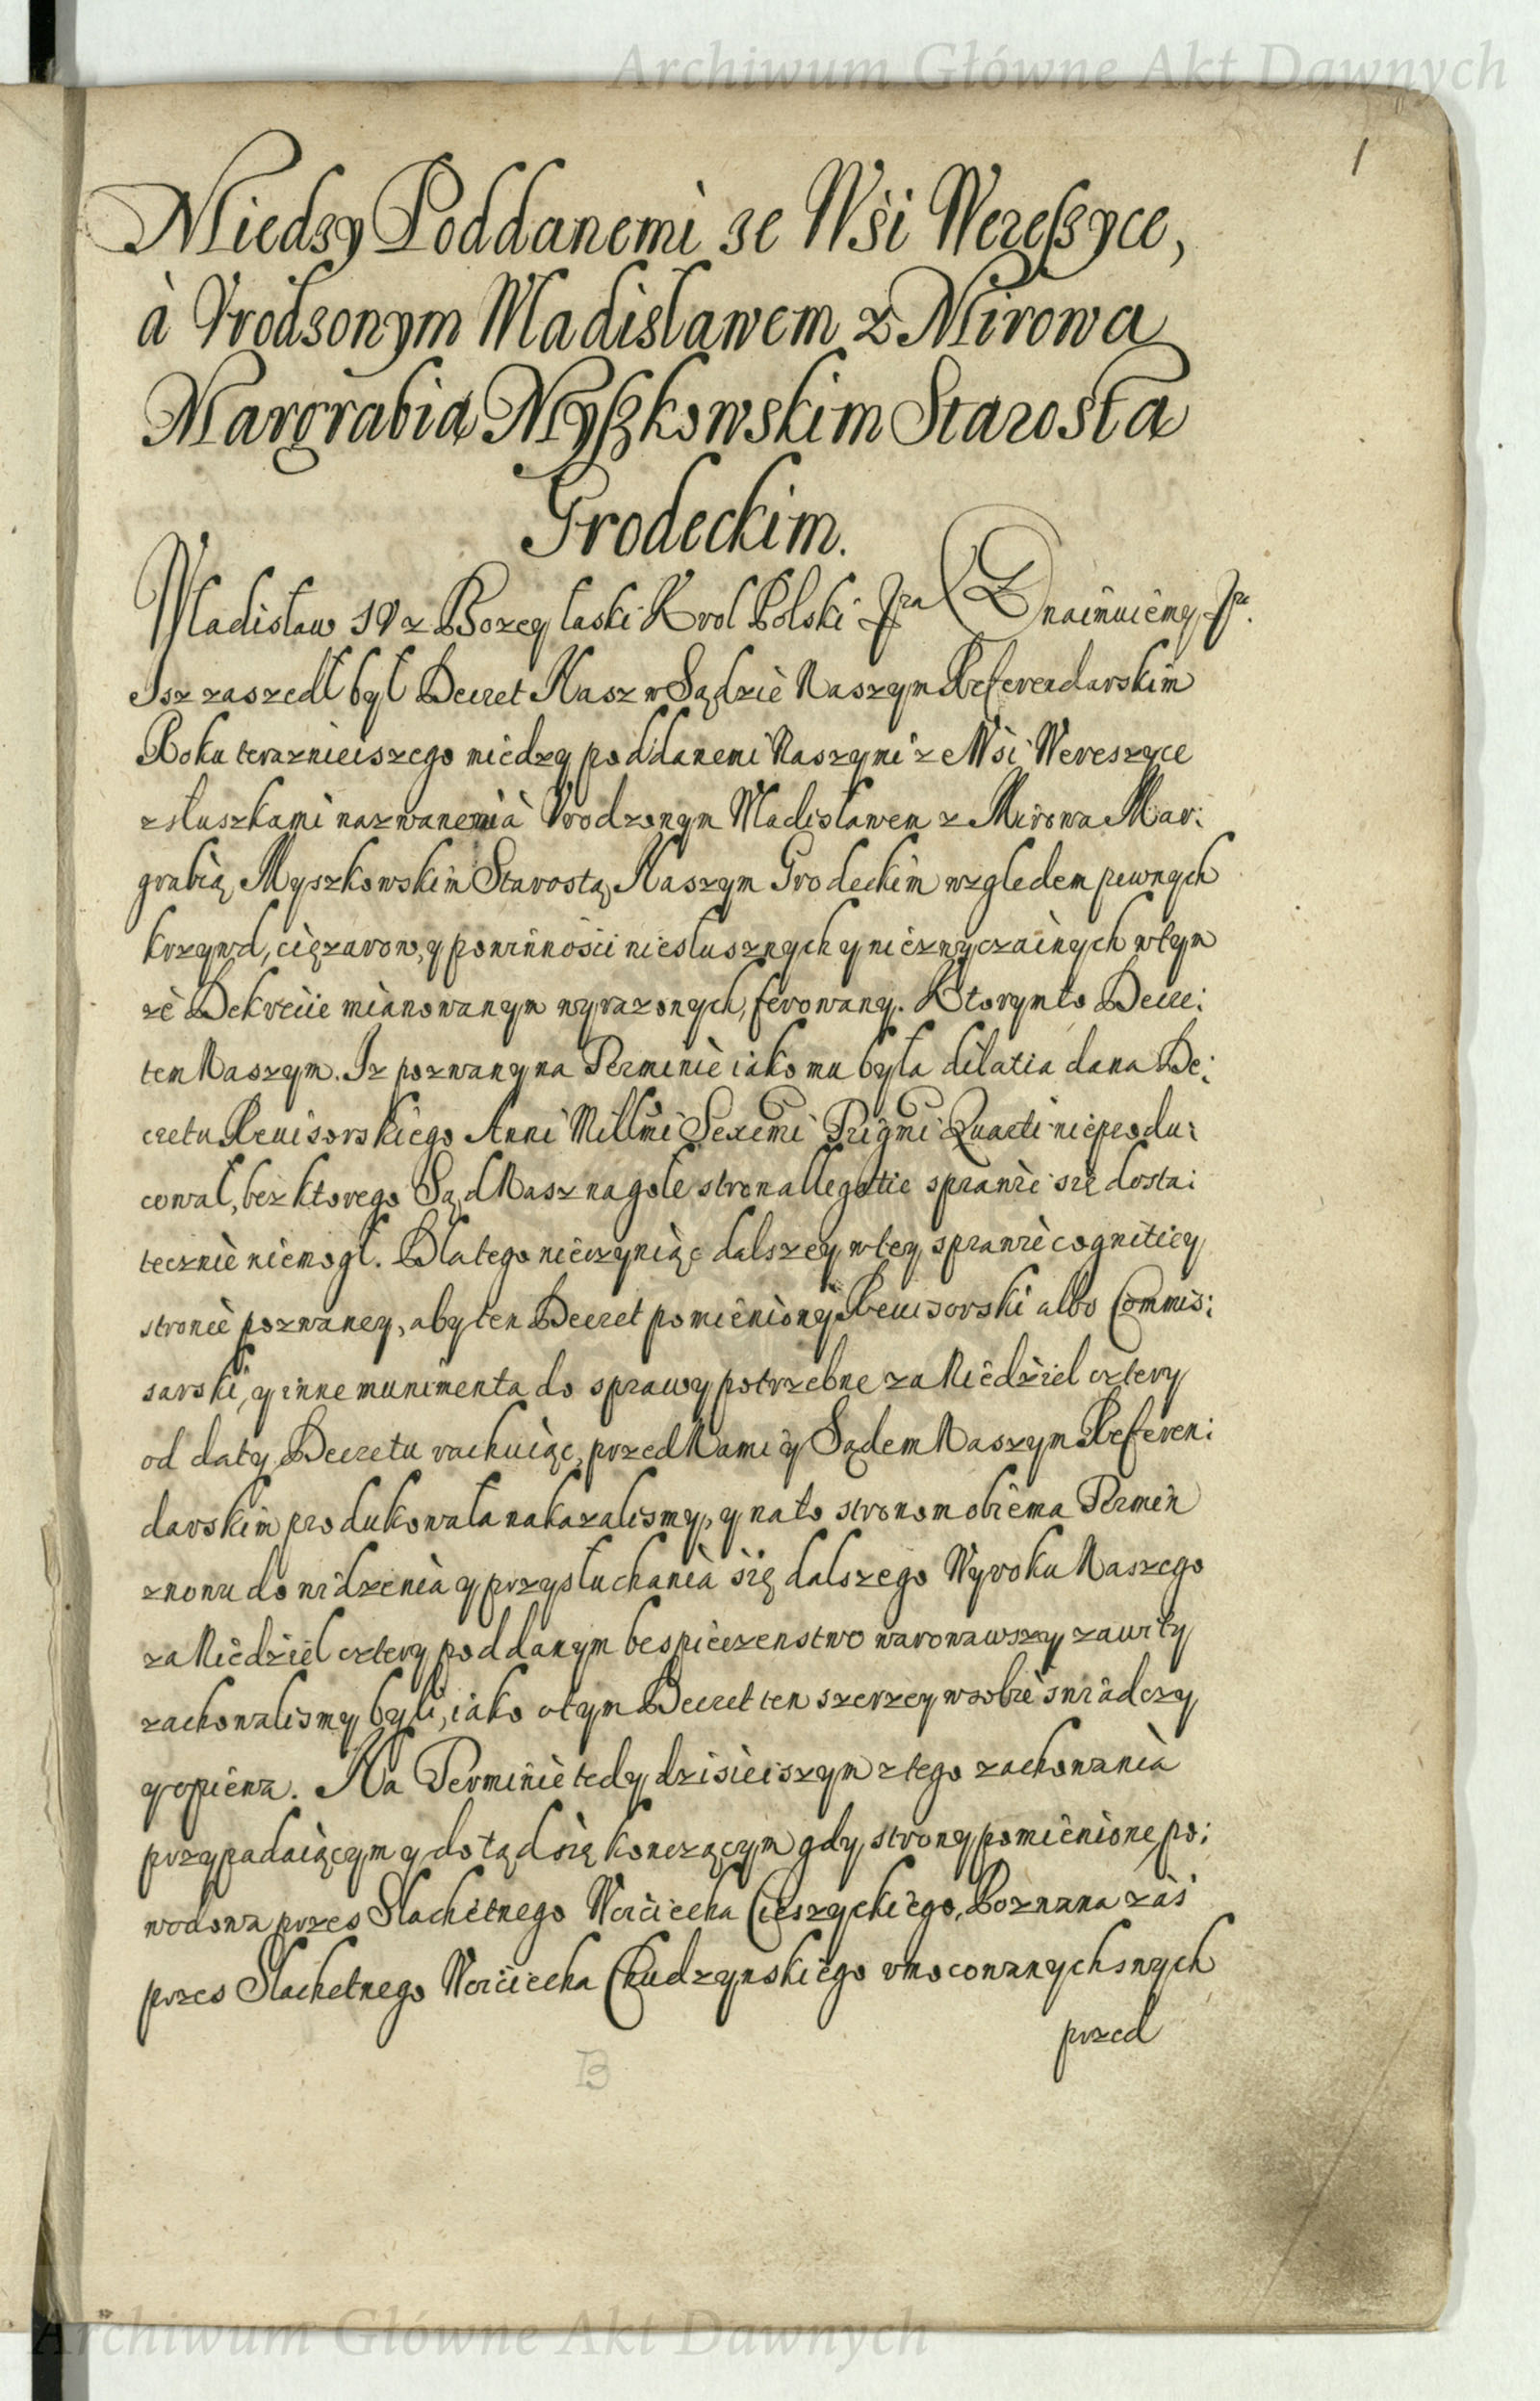 Archiwum Główne Akt Dawnych
1
Miedzy Poddanemi ze Wśi Wereszyce,
à Vrodzonym Wladisławem z Mirowa
Margrabią Myszkowskim Starostą
Grodeckim.
Wladisław IV z Bozey łaski Krol Polski etc Oznaimuiemy etc.
Isz zaszedł był Decret Nasz w Sądzie Naszym Referendarskim
Roku teraznieiszego miedzy poddanemi Naszymi z Wśi Wereszyce
z słuszkami nazwanemi à Vrodzonym Wladisławem z Mirowa Mar:
grabią Myszkowskim Starostą Naszym Grodeckim względem pewnych
krzywd, ciężarow, y powinnosci niesłusznych y niezwyczainych w tym
ze Dekrecie mianowanym wyrazonych, ferowany. Ktorym to Decre:
tem Naszym. Iz pozwany na Terminie iako mu była dilatia dana De:
cretu Reuisorskiego Anni Millmi Sexcmi Trigmi Quarti nie produ:
cował, bez ktorego Sąd Nasz na gołe stron allegatie sprawic się dosta:
tecznie niemogł. Dlatego nieczyniąc dalszey w tey sprawie cognitiey
stronie pozwaney, aby ten Decret pomieniony Reuisorski albo Commis:
sarski, y inne munimenta do sprawy potrzebne za Niedziel cztery
od daty Decretu rachuiąc, przed Nami y Sądem Naszym Referen:
darskim produkowała nakazalismy, y na to stronom obiema Termin
znowu do widzenia y przysłuchania się dalszego Wyroku Naszego
za Niedziel cztery poddanym bespieczenstwo warowawszy zawity
zachowalismy byli, iako o tym Decret ten szerzey w sobie swiadczy
y opiewa. Na Terminie tedy dzisieiszym z tego zachowania
przypadaiącym y dotąd się konczącym gdy strony pomienione po:
wodowa przes Slachetnego Woiciecha Cieszyckiego, Pozwana zaś
przes Slachetnego Woiciecha Chudzynskiego vmocowanych swych
przed
B
Archiwum Główne Akt Dawnych